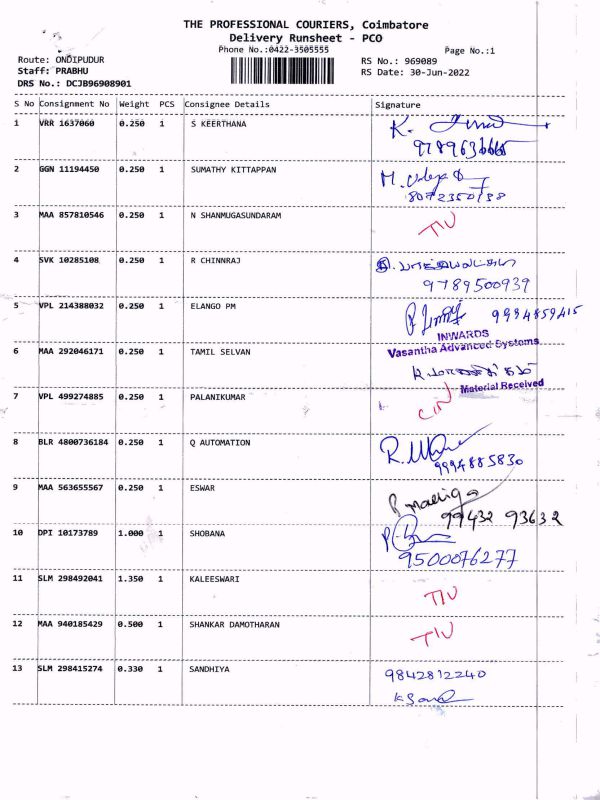 THE PROFESSIONAL COURIERS, Coimbatore
Delivery Runsheet - PCO
Phone No.:0422-3505555
Page No.:1
Route: ONDIPUDUR
RS No.: 969089
Staff: PRABHU
RS Date: 30-Jun-2022
DRS No.: DCJB96908901
S No Consignment No Weight PCS Consignee Details Signature
1 VRR 1637060 0.250 1 S KEERTHANA K.
2 GGN 11194450 0.250 1 SUMATHY KITTAPPAN M.
3 MAA 857810546 0.250 1 N SHANMUGASUNDARAM TIV
4 SVK 10285108 0.250 1 R CHINNRAJ
9789500939
5 VPL 214388032 0.250 1 ELANGO PM 9994859415
INWARDS
Vasantha Advanced Systems
6 MAA 292046171 0.250 1 TAMIL SELVAN
Material Received
7 VPL 499274885 0.250 1 PALANIKUMAR CIN
8 BLR 4800736184 0.250 1 Q AUTOMATION
9994885830
9 MAA 563655567 0.250 1 ESWAR
99432 93632
10 DPI 10173789 1.000 1 SHOBANA
9500076277
11 SLM 298492041 1.350 1 KALEESWARI TIV
12 MAA 940185429 0.500 1 SHANKAR DAMOTHARAN TIV
13 SLM 298415274 0.330 1 SANDHIYA 9842812240